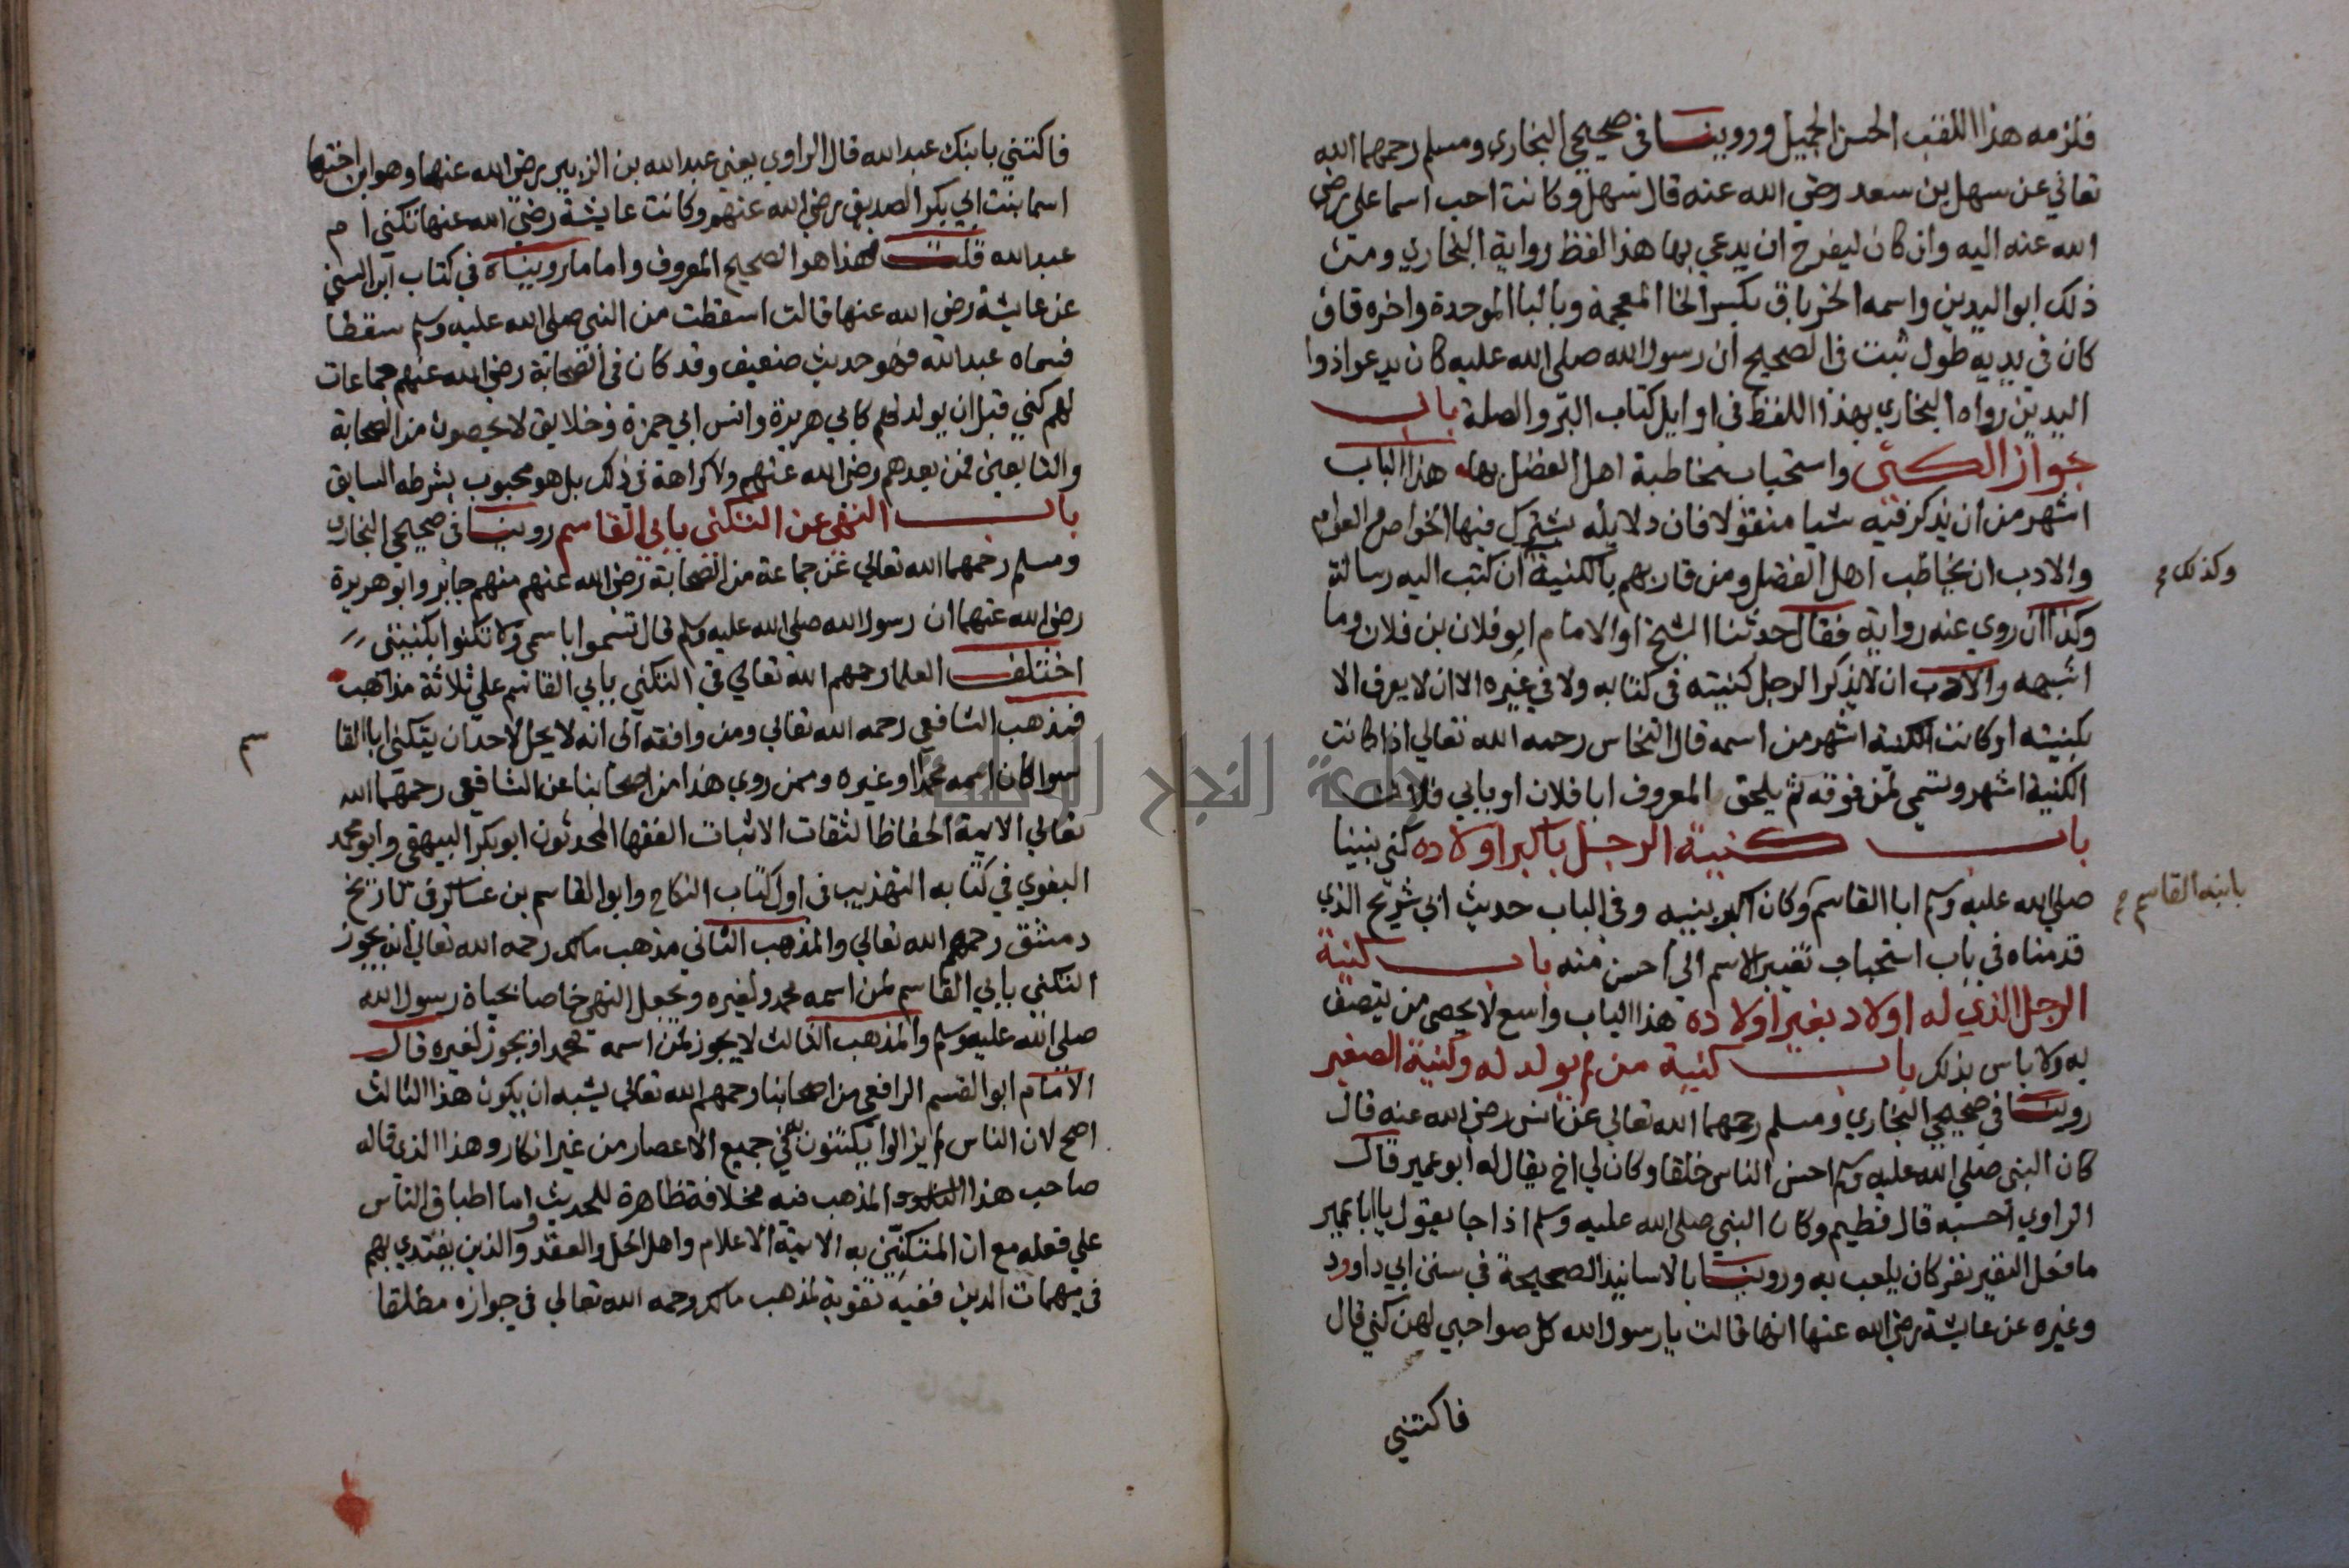 فلزمه هذا اللقب الحسن الجميل وروينا في صحيحي البخاري ومسلم رحمهما الله
تعالي عن سهل بن سعد رضي الله عنه قال سهل وكانت احب اسما علي رضي
الله عنه اليه وان كان ليفرح ان يدعي بها هذا لفظ رواية البخاري ومن
ذلك ابو اليدين واسمه الخرباق بكسر الخا المعجمة وبالبا الموحدة واخره قاف
كان في يديه طول ثبت في الصحيح ان رسول الله صلى الله عليه كان يدعوا ذوا
اليدين رواه البخاري بهذا اللفظ في اوايل كتاب البر والصلة باب
جواز الكنى واستحباب مخاطبة اهل الفضل بها هذا الباب
اشهر من ان يذكر فيه شيا منقولا فان دلايله يشترك فيها الخواص والعوام
والادب ان يخاطب اهل الفضل ومن قاربهم بالكنية ان كتب اليه رسالة
وكذلك
وكذا ان روي عنه رواية فقال حدثنا الشيخ او الامام ابو فلان بن فلان وما
اشبهه والادب ان لا يذكر الرجل كنيته في كتابه ولا في غيره الا ان لا يعرف الا
بكنيته او كانت الكنية اشهر من اسمه قال النحاس رحمه الله تعالي اذا كانت
الكنية اشهر وتسمي لمن فوقه ثم يلحق المعروف ابا فلان او بابي فلان
باب كنية الرجل باكبر اولاده كني نبينا
صلى الله عليه وسلم ابا القاسم وكان اكبر بنيه وفي الباب حديث ابي شريح الذي
بابنه القاسم
قدمناه في باب استحباب تغيير الاسم الي احسن منه باب كنية
الرجل الذي له اولاد بغير اولاده هذا الباب واسع لا يحصى من يتصف
به ولا باس بذلك باب كنية من لم يولد له وكنية الصغير
روينا في صحيحي البخاري ومسلم رحمهما الله تعالي عن انس رضي الله عنه قال
كان النبي صلى الله عليه وسلم احسن الناس خلقا وكان لي اخ يقال له ابو عمير قال
الراوي احسبه قال فطيم وكان النبي صلى الله عليه وسلم اذا جا يقول يا ابا عمير
ما فعل النغير نغر كان يلعب به وروينا بالاسانيد الصحيحة في سنن ابي داوود
وغيره عن عايشة رضي الله عنها انها قالت يا رسول الله كل صواحبي لهن كني قال
فاكتني
فاكتني بابنك عبد الله قال الراوي يعني عبد الله بن الزبير رضي الله عنها وهو ابن اختها
اسما بنت ابي بكر الصديق رضي الله عنهم وكانت عايشة رضي الله عنها تكني ام
عبد الله قلت فهذا هو الصحيح المعروف واما ما رويناه في كتاب ابن السني
عن عايشة رضي الله عنها قالت اسقطت من النبي صلى الله عليه وسلم سقطا
فسماه عبد الله فهو حديث ضعيف وقد كان في الصحابة رضي الله عنهم جماعات
لهم كني قبل ان يولد لهم كابي هريرة وانس ابي حمزة وخلايق لا يحصون من الصحابة
والتابعين فمن بعدهم رضي الله عنهم ولا كراهة في ذلك بل هو محبوب بشرطه السابق
باب النهي عن التكني بابي القاسم روينا في صحيحي البخاري
ومسلم رحمهما الله تعالي عن جماعة من الصحابة رضي الله عنهم منهم جابر وابو هريرة
رضي الله عنهما ان رسول الله صلى الله عليه وسلم قال تسموا باسمي ولا تكنوا بكنيتي
اختلف العلما رحمهم الله تعالي في التكني بابي القاسم علي ثلاثة مذاهب
فمذهب الشافعي رحمه الله تعالي ومن وافقه الي انه لا يحل لاحد ان يتكني ابا القا
سم
سوا كان اسمه محمدا او غيره وممن روي هذا من اصحابنا عن الشافعي رحمهما الله
تعالي الايمة الحفاظ الثقات الاثبات الفقها المحدثون ابو بكر البيهقي وابو محمد
البغوي في كتابه التهذيب في اول كتاب النكاح وابو القاسم بن عساكر في تاريخ
دمشق رحمهم الله تعالي والمذهب الثاني مذهب مالك رحمه الله تعالي انه يجوز
التكني بابي القاسم لمن اسمه محمد ولغيره ويجعل النهي خاصا بحياة رسول الله
صلى الله عليه وسلم والمذهب الثالث لا يجوز لمن اسمه محمد او يجوز لغيره قال
الامام ابو القسم الرافعي من اصحابنا رحمهم الله تعالي يشبه ان يكون هذا الثالث
اصح لان الناس لم يزالوا يكتنون به في جميع الاعصار من غير انكار وهذا الذي قاله
صاحب هذا المذهب فيه مخالفة ظاهرة للحديث واما اطباق الناس
علي فعله مع ان المتكنين به الايمة الاعلام واهل الحل والعقد والذين يقتدي بهم
في مهمات الدين ففيه تقوية لمذهب مالك رحمه الله تعالي في جوازه مطلقا
جامعة النجاح الوطنية